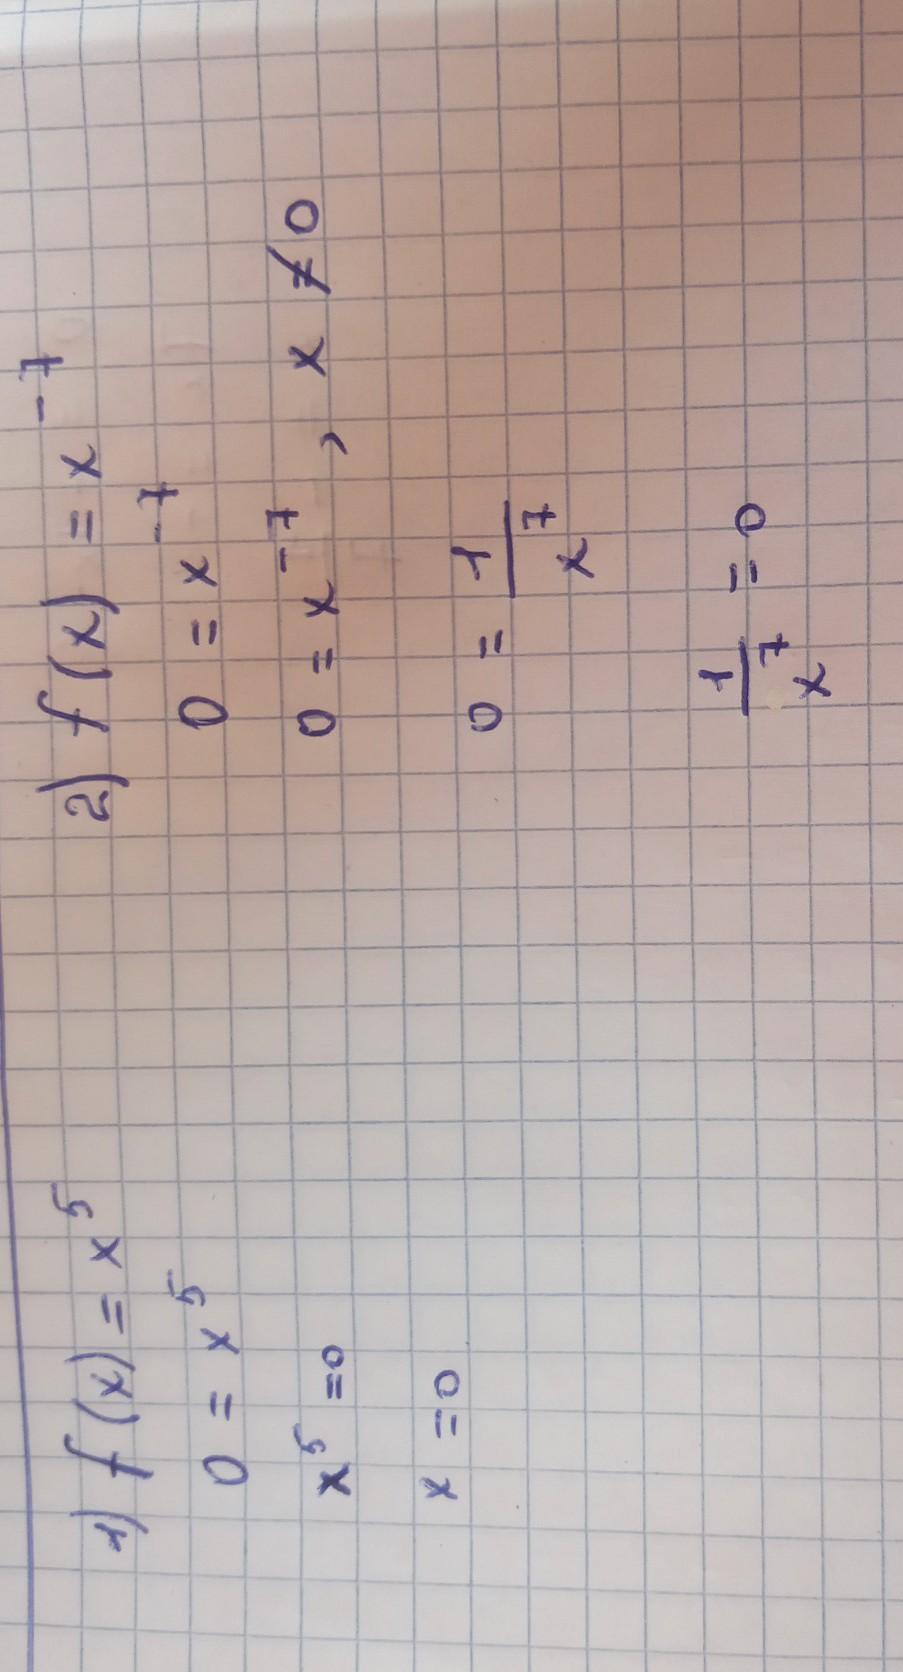 1) f(x) = x⁵
0 = x⁵
x⁵ = 0
x = 0
2) f(x) = x⁻⁷
0 = x⁻⁷
0 = x⁻⁷, x ≠ 0
0 = 1/x⁷
1/x⁷ = 0